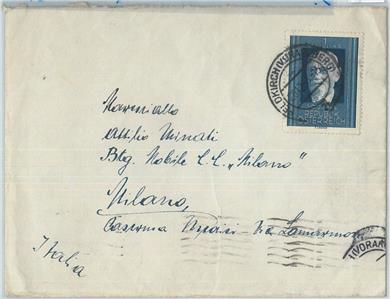 FELDKIRCH (VORARLBERG)
ÖSTERREICH
Maresciallo
Attilio Minati
Btg. Mobile C.C. „Milano"
Milano,
Caserma
Via Lamarmora
Italia
(VORARL